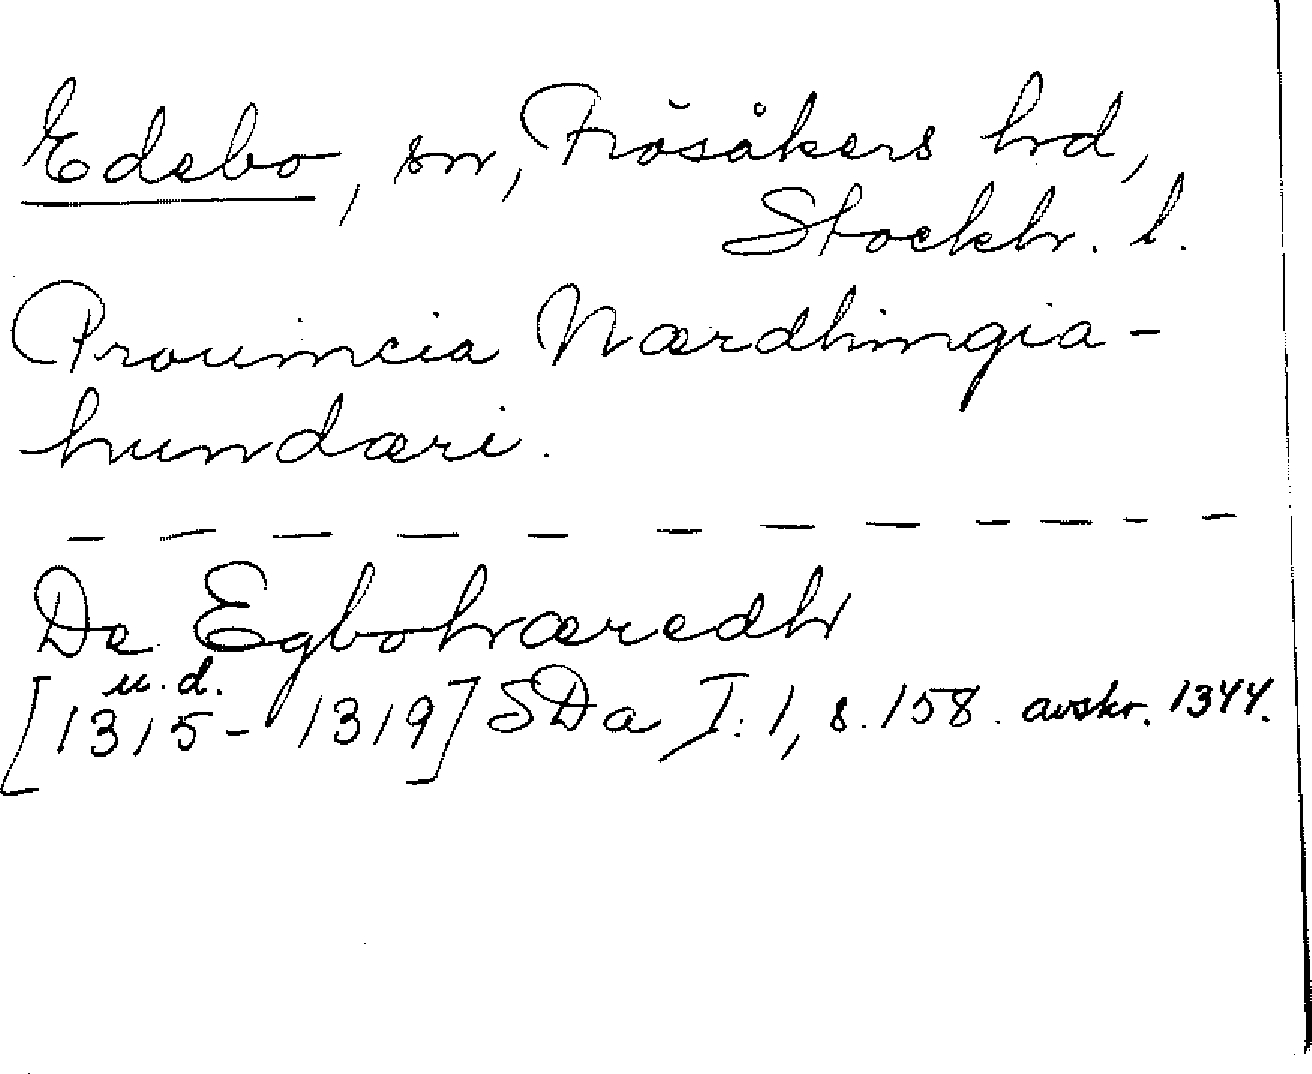 Edebo, sn, Frösåkers hd,
Stockh. l.
Prouincia Nærdhingia-
hundæri.
— — — — — — — — — — — —
De Egbohæredh
u.d.
[1315-1319] SDa I:1, s.158. avskr. 1344.